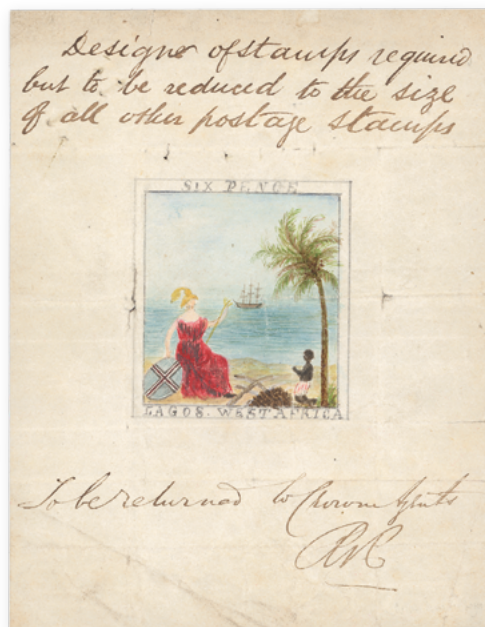 Designe of stamps required
but to be reduced to the size
of all other postage stamps
SIX PENCE
LAGOS. WEST AFRICA
To be returned to Crown Agents